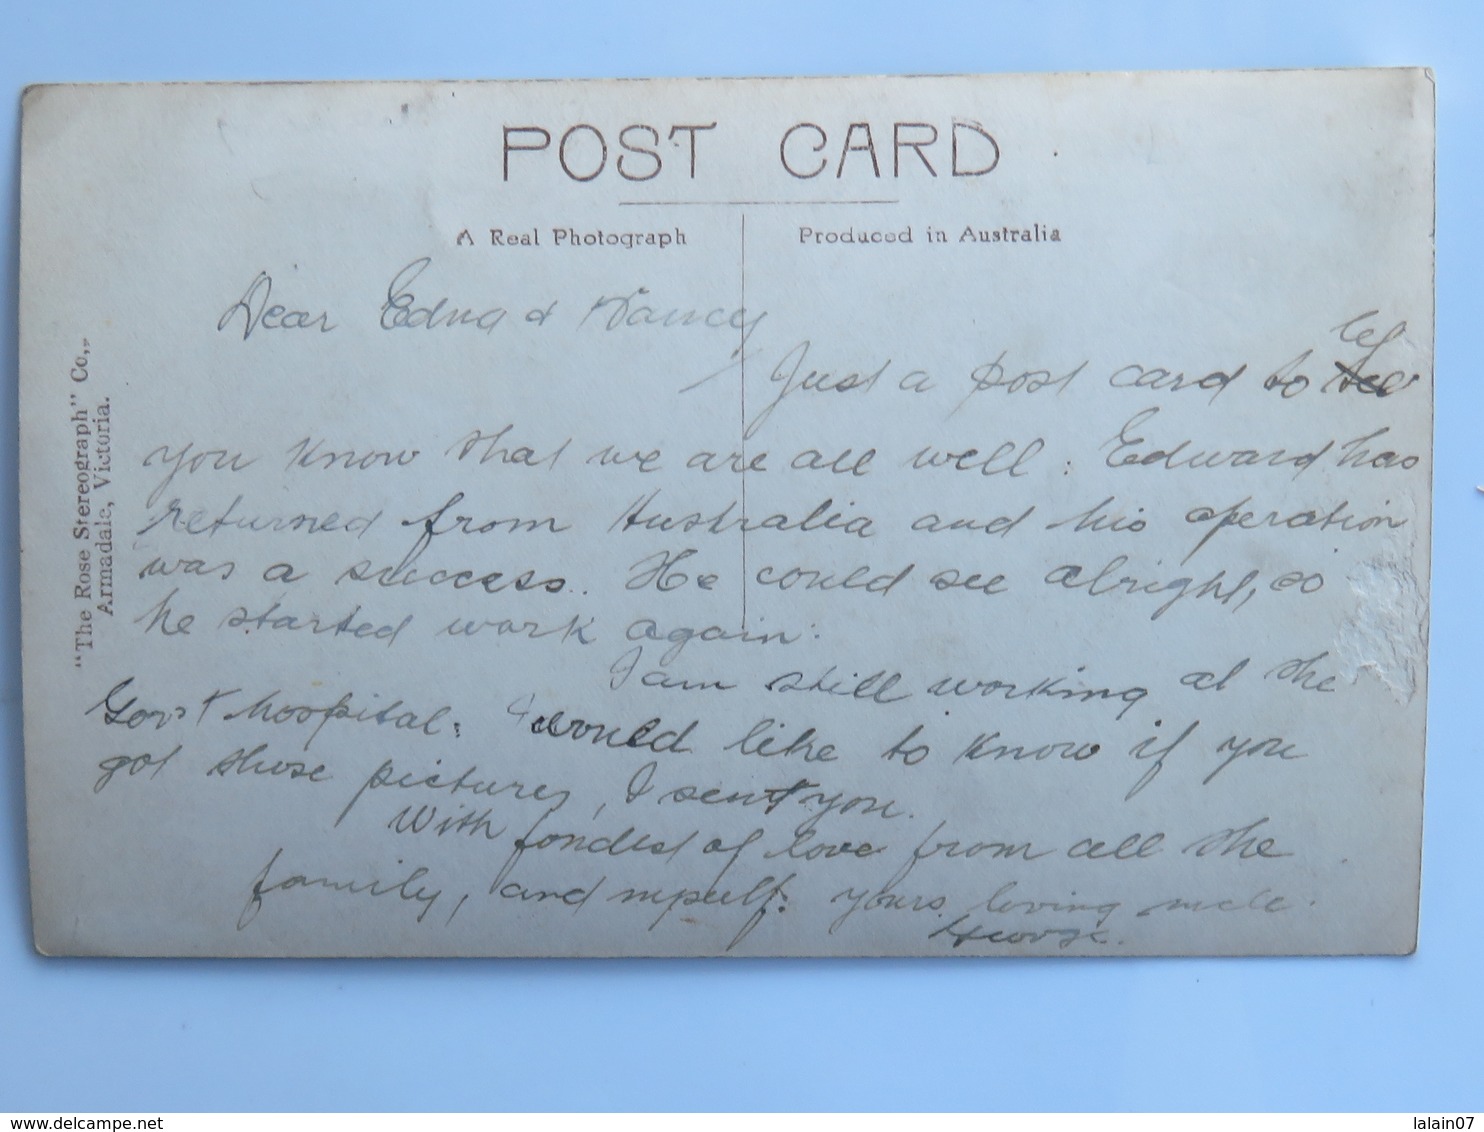 POST CARD
A Real Photograph
Produced in Australia
"The Rose Stereograph" Co.,
Armadale, Victoria.
Dear Edna & Nancy
Just a post card to let
you know that we are all well: Edward has
returned from Australia and his operation
was a success. He could see alright, so
he started work again:
I am still working at the
Gov't hospital: I would like to know if you
got those pictures, I sent you.
With fondest of love from all the
family, and myself: yours loving uncle
delcampe.net
lalain07